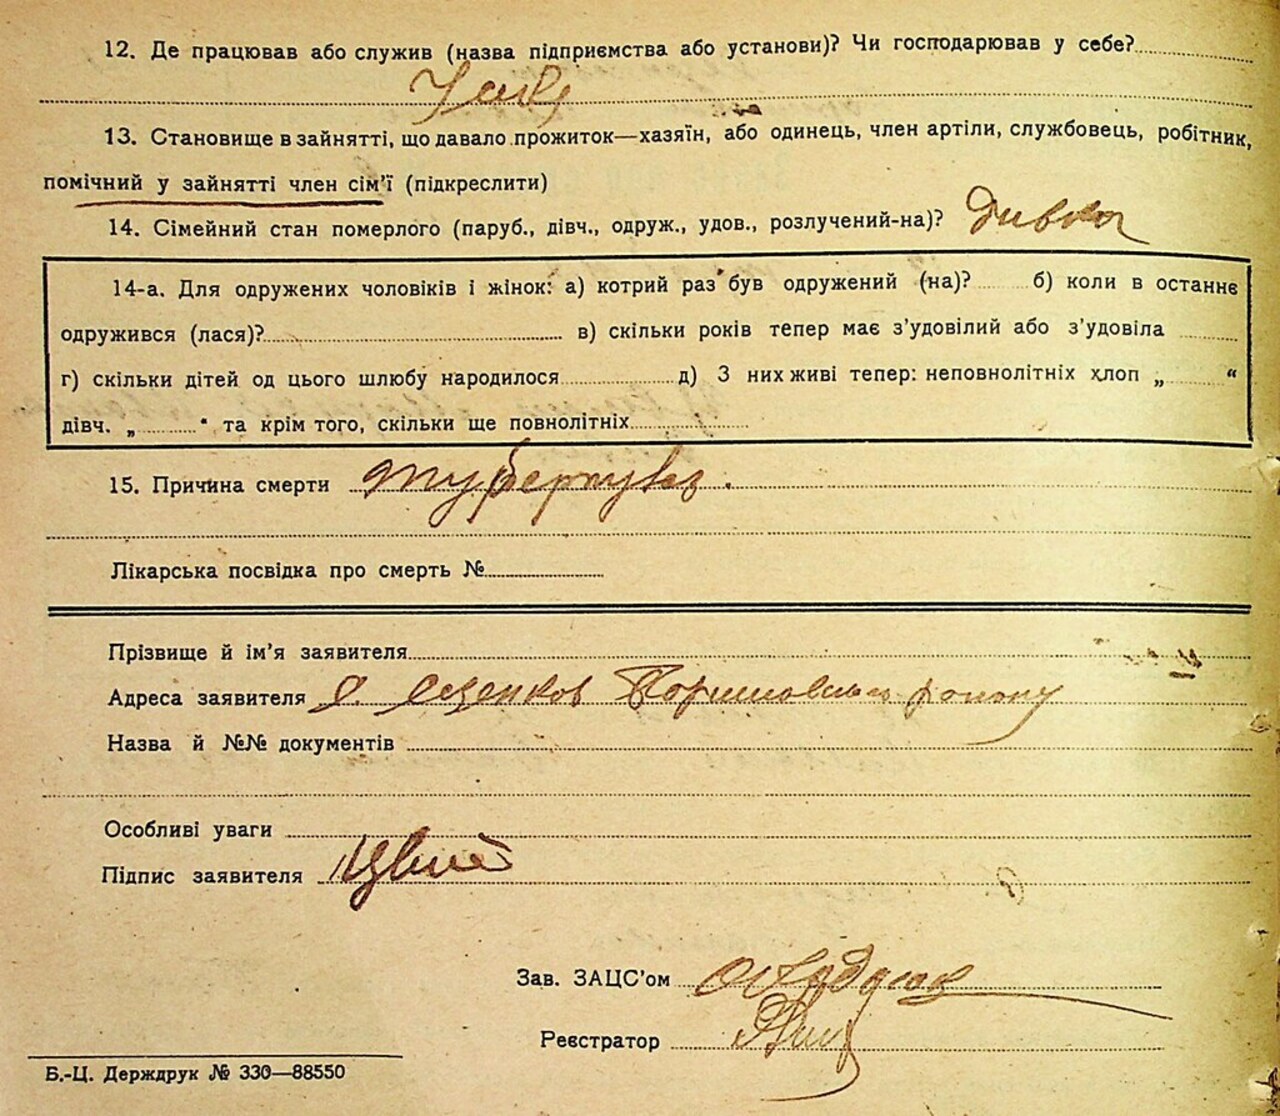 12. Де працював або служив (назва підприємства або установи)? Чи господарював у себе?
13. Становище в зайнятті, що давало прожиток—хазяїн, або одинець, член артілі, службовець, робітник,
помічний у зайнятті член сім'ї (підкреслити)
14. Сімейний стан померлого (паруб., дівч., одруж., удов., розлучений-на)? Дивка
14-а. Для одружених чоловіків і жінок: а) котрий раз був одружений (на)? б) коли в останнє
одружився (лася)? в) скільки років тепер має з'удовілий або з'удовіла
г) скільки дітей од цього шлюбу народилося д) З них живі тепер: неповнолітніх хлоп „ “
дівч. „ “ та крім того, скільки ще повнолітніх
15. Причина смерти туберкулез.
Лікарська посвідка про смерть №
Прізвище й ім'я заявителя
Адреса заявителя району
Назва й №№ документів
Особливі уваги
Підпис заявителя
Зав. ЗАЦС'ом
Реєстратор
Б.-Ц. Держдрук № 330—88550